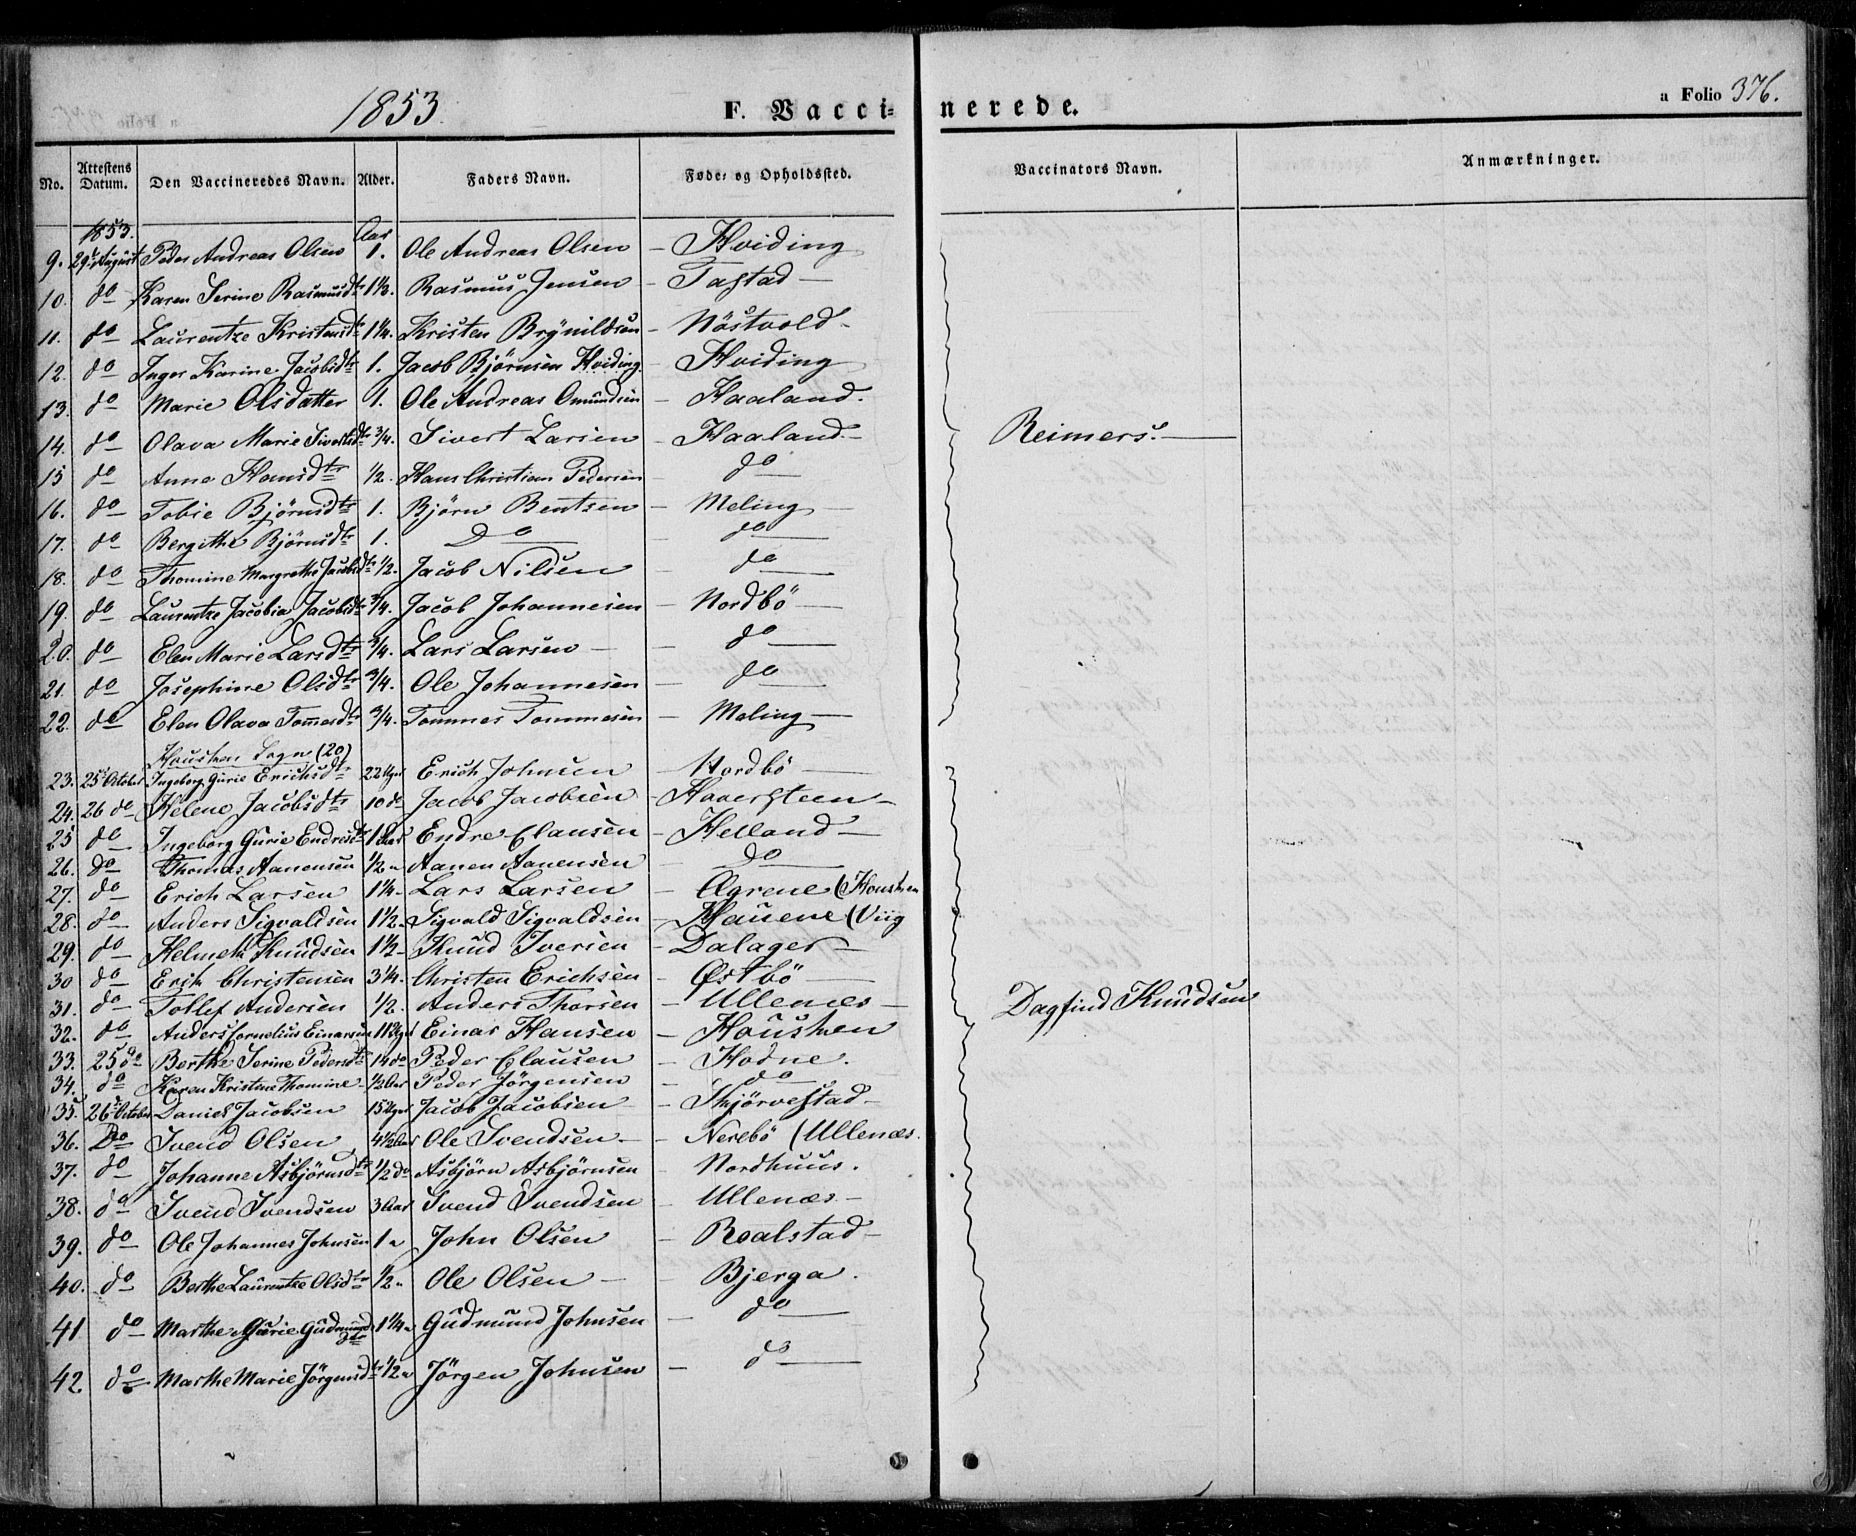 1853.
F. Vaccinerede.
a Folio 376.
No. Attestens Datum. Den Vaccineredes Navn. Alder. Faders Navn. Føde- og Opholdssted. Vaccinators Navn. Anmærkninger.
1853. Aar
9. 29 August Peder Andreas Olsen 1. Ole Andreas Olsen – Hviding
10. do Karen Serine Rasmusdtr Rasmus Jensen – Tastad –
11. do Laurentze Kristensdtr 1 1/4. Kristen Brynildsen – Nöstvold –
12. do Inger Karine Jacobsdtr 1. Jacob Bjørnsen Hviding. – Hviding
13. do Marie Olsdatter 1. Ole Andreas Omundsen – Haaland.
14. do Olava Marie Sivertsdtr 3/4. Sivert Larsen – Haaland. – Reimers.
15 do Anne Hansdtr 1/2. Hans Christian Pedersen do
16. do Tobie Bjørnsdtr 1. Bjørn Bentsen – Meling –
17. do Bergithe Bjørnsdtr 1. Do do
18. do Thomine Margrethe Jacobsdtr 1/2. Jacob Nilsen – do
19. do Laurentze Jacobia Jacobsdtr 3/4. Jacob Johannesen – Nordbö –
20. do Elen Marie Larsdtr 3/4. Lars Larsen – do
21. do Josephine Olsdtr 3/4. Ole Johannesen – do
22. do Elen Olava Tomesdtr 3/4. Tommes Tommesen – Meling –
Housken Sogn (20)
23. 25 October Ingeborg Gurie Erichsdtr 22 Uger Erich Johnsen – Nordbö –
24. 26 do Helene Jacobsdtr 10 do Jacob Jacobsen – Haversteen –
25 do Ingeborg Gurie Endresdtr 1 Aar Endre Clausen – Helland –
26. Do Thomas Aanensen 1/2 " Aanen Aanensen – Do
27. do Erich Larsen 1 1/4 – Lars Larsen – Ogrene (Housken
28. do Anders Sigvaldsen 1 1/2 – Sigvald Sigvaldsen – Hauene (Viig
29. do Helmeth Knudsen 1 1/2 – Knud Iversen – Dalager –
30 do Erik Christensen 3 1/4. Christen Erichsen – Østbö –
31. do Tollef Andersen 1/2. Anders Thorsen – Ullenæs – Dagfind Knudsen
32. do Anders Cornelius Einarsen 11 Uger Einar Hansen – Housken
33. 25 do Berthe Serine Pedersdtr 14 do Peder Clausen – Hodne.
34. do Karen Kristine Thomine – 1/2 Aar Peder Jörgensen – do
35. 26 October Daniel Jacobsen 15 Uger Jacob Jacobsen – Skjörvestad –
36. Do Svend Olsen 4 1/2 Aar Ole Svendsen – – Nerebö (Ullenæs.
37. do Johanne Asbjörnsdtr 1/2 do Asbjörn Asbjörnsen – Nordhuus.
38. do Svend Svendsen 3 Aar Svend Svendsen – Ullenæs –
39. do Ole Johannes Johnsen 1 " John Olsen – Roalstad –
40. do Berthe Laurentze Olsdtr 1/2 " Ole Olsen – – Bjerga.
41 do Marthe Gurie Gudmundsdtr 1 1/4 " Gudmund Johnsen – do
42. do Marthe Marie Jörgensdtr 1/2 " Jörgen Johnsen – do